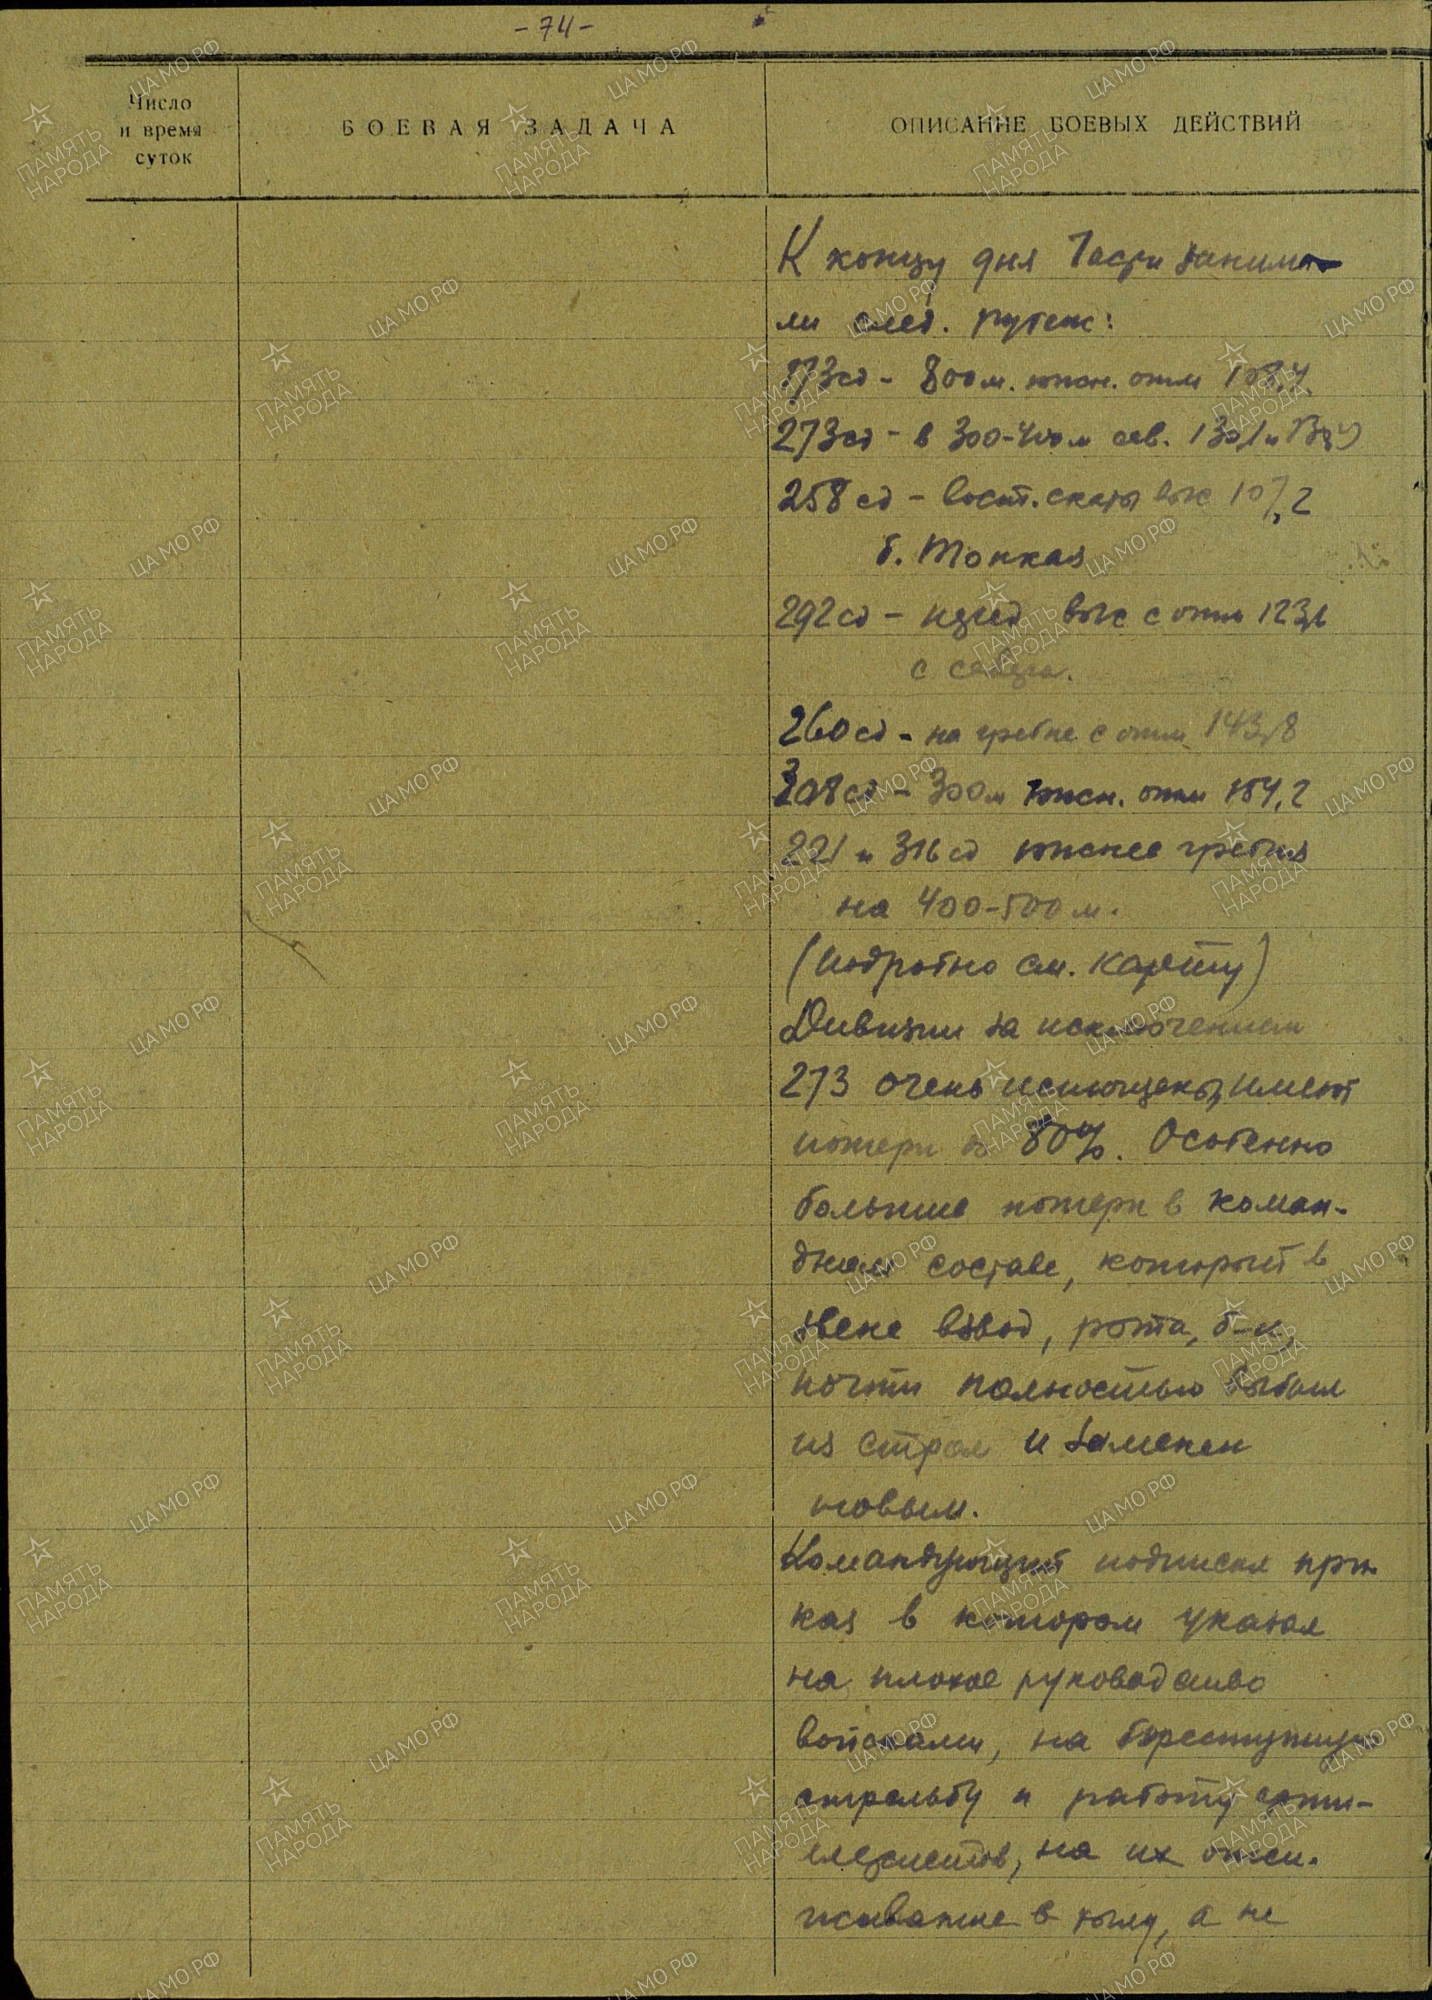 -74-
Число
и время
суток
БОЕВАЯ ЗАДАЧА
ОПИСАНИЕ БОЕВЫХ ДЕЙСТВИЙ
К концу дня Части занима-
ли след. рубеж:
173сд - 800м. южн. отм
273сд - в 300-400м сев. 130,1 и
258сд - вост. скаты выс 107,2
б. Тонкая
292сд - перед выс с отм 123,6
с севера.
260сд - на гребне с отм 143,8
308сд - 300м южн. отм 154,2
221 и 316сд южнее гребня
на 400-500м.
(подробно см. карту)
Дивизии за исключением
273 очень истощены, имеют
потери в 80%. Особенно
большие потери в коман-
дном составе, который в
звене взвод, рота, б-н,
почти полностью выбыл
из строя и заменен
новым.
Командующий подписал при-
каз в котором указал
на плохое руководство
войсками, на
стрельбу и работу арти-
леристов, на их отси-
живание в тылу, а не
ЦАМО РФ
ПАМЯТЬ
НАРОДА